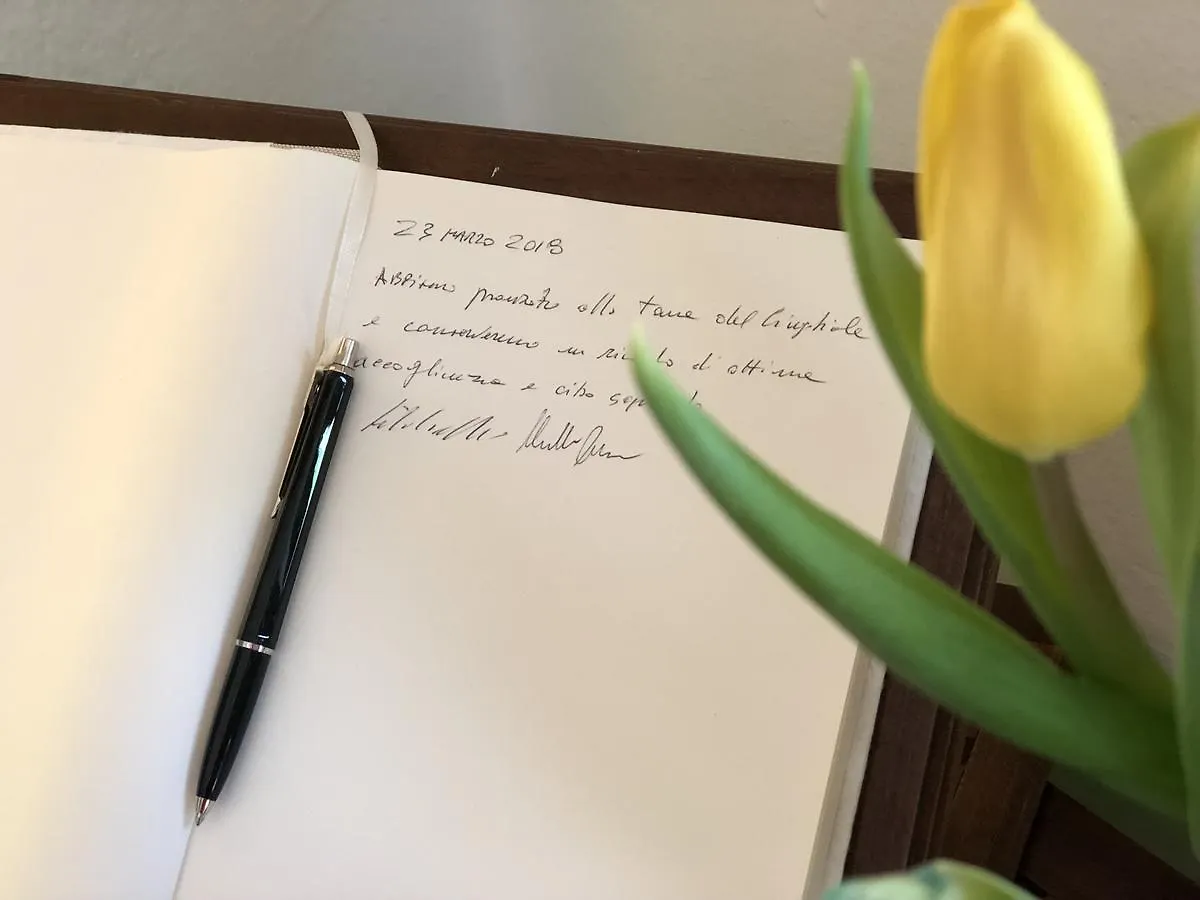 23 MARZO 2018
ABBiamo pranzato alla tana del Cinghiale
e conserveremo un ri do di ottima
accoglienza e cibo